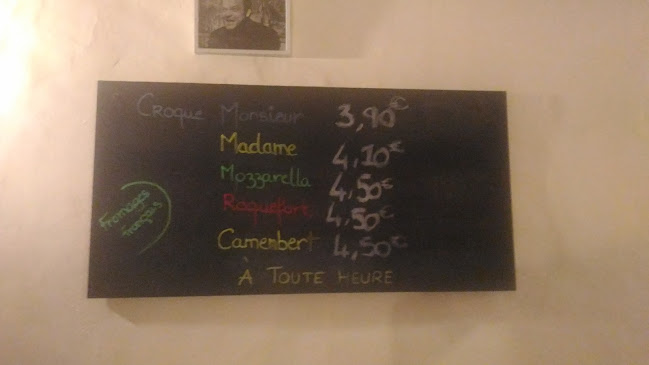 CROQUE Monsieur 3,90€
Madame 4,10€
Mozzarella 4,50€
Roquefort 4,50€
Camembert 4,50€
À TOUTE HEURE
Fromages
français